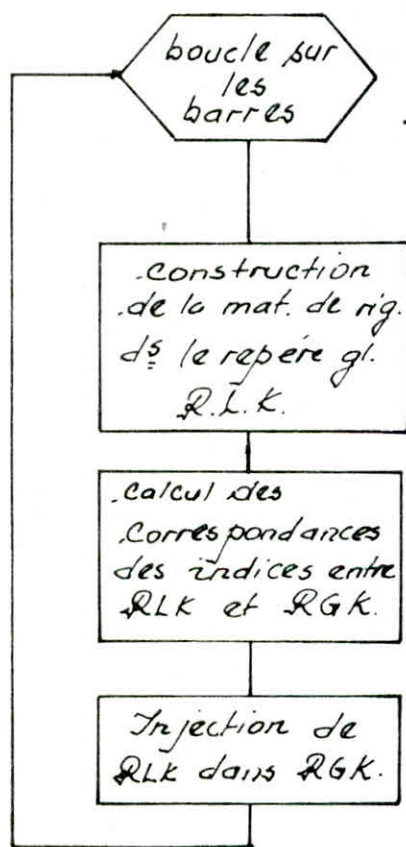 boucle sur
les
barres
.construction
.de la mat. de rig.
ds le repére gl.
R.L.K.
.calcul des
.correspondances
des indices entre
RLK et RGK.
Injection de
RLK dans RGK.